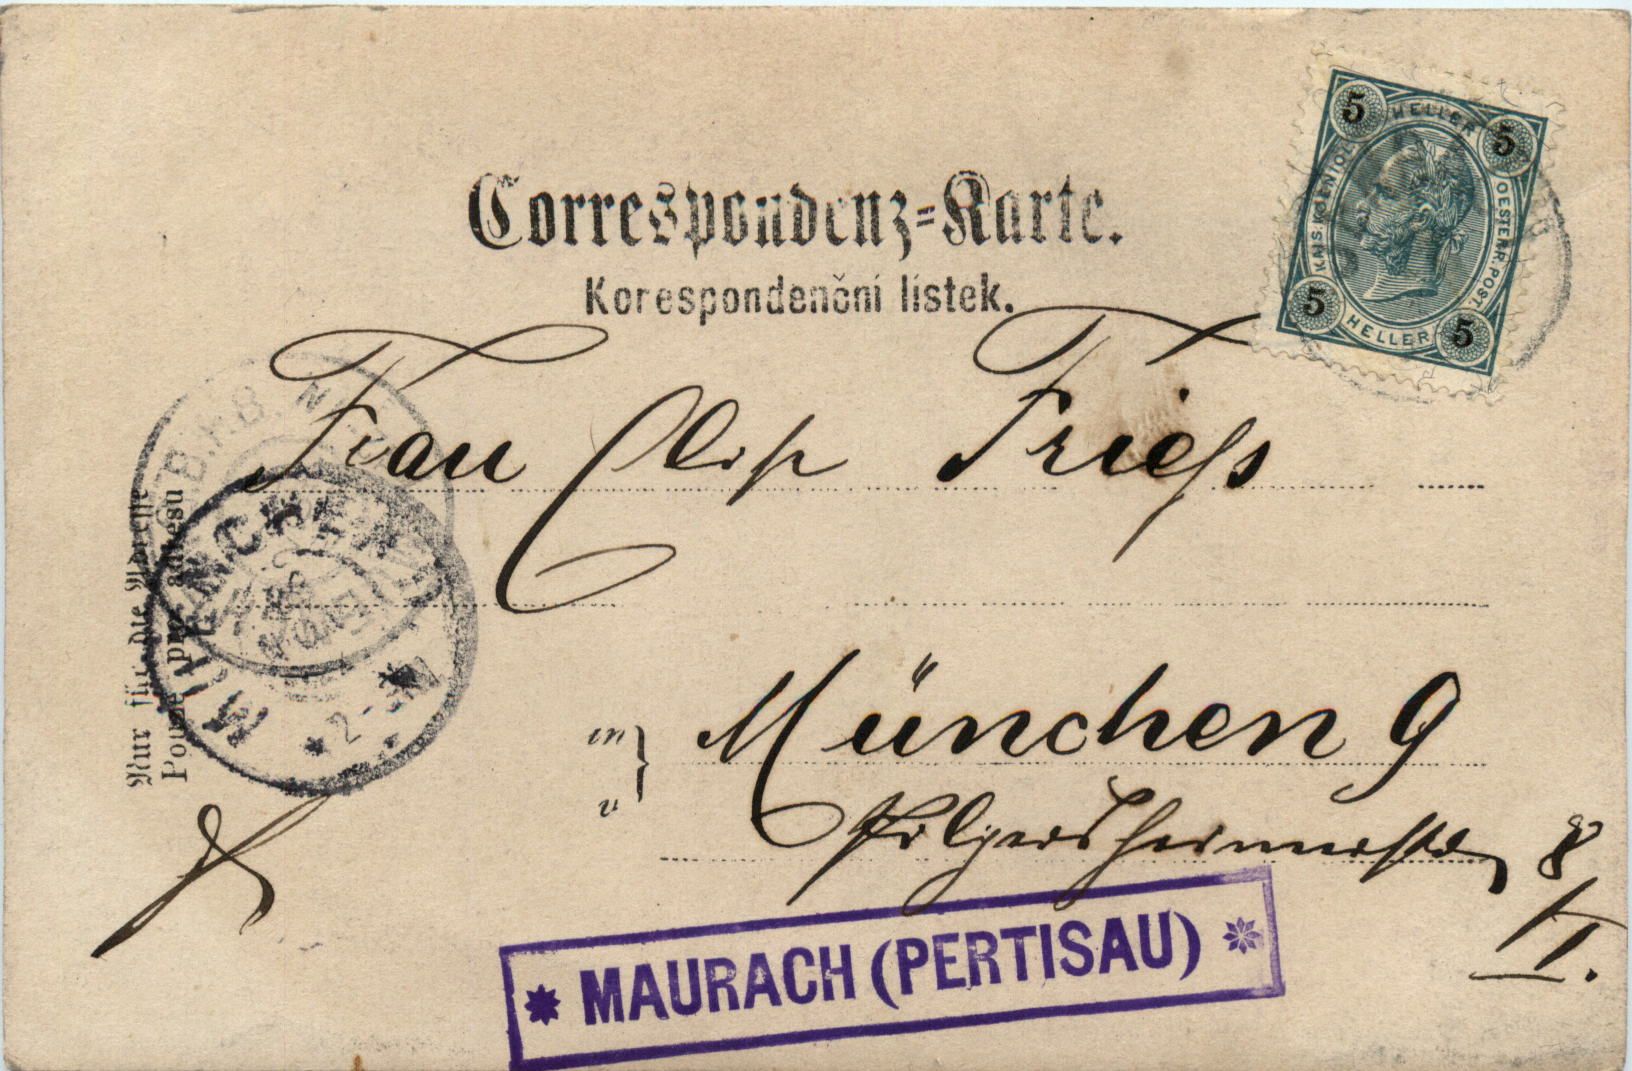 Correspondenz-Karte.
Korespondenční lístek.
5 HELLER 5
KAIS. KOENIGL. OESTERR. POST.
5 HELLER 5
Frau Elise Frieß
in } München 9
v
Pilgersheimerstr 8
II.
Nur für die Adresse
Pouze pro adresu
MUENCHEN
* MAURACH (PERTISAU) *